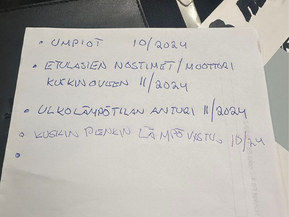 • UMPIOT 10/2024
• ETULASIEN NOSTIMET/MOOTTORI
KUSKINOVEEN 11/2024
• ULKOLÄMPÖTILAN ANTURI 11/2024
• KUSKIN PENKIN LÄMPÖVASTUS 10/24
•